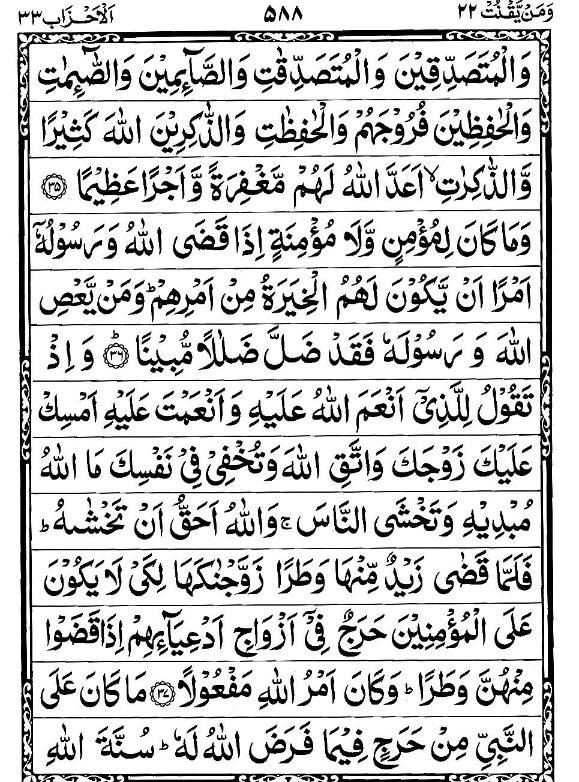 وَمَنْ يَّقْنُتْ ٢٢ ٥٨٨ اَلْاَحْزَاب ٣٣
وَالْمُتَصَدِّقِيْنَ وَالْمُتَصَدِّقٰتِ وَالصَّآئِمِيْنَ وَالصّٰٓئِمٰتِ
وَالْحٰفِظِيْنَ فُرُوْجَهُمْ وَالْحٰفِظٰتِ وَالذّٰكِرِيْنَ اللّٰهَ كَثِيْرًا
وَّالذّٰكِرٰتِ ۙ اَعَدَّ اللّٰهُ لَهُمْ مَّغْفِرَةً وَّاَجْرًا عَظِيْمًا ﴿۳۵﴾
وَمَا كَانَ لِمُؤْمِنٍ وَّلَا مُؤْمِنَةٍ اِذَا قَضَى اللّٰهُ وَرَسُوْلُهٗٓ
اَمْرًا اَنْ يَّكُوْنَ لَهُمُ الْخِيَرَةُ مِنْ اَمْرِهِمْ ؕ وَمَنْ يَّعْصِ
اللّٰهَ وَ رَسُوْلَهٗ فَقَدْ ضَلَّ ضَلٰلًا مُّبِيْنًا ﴿۳۶﴾ؕ وَ اِذْ
تَقُوْلُ لِلَّذِيْٓ اَنْعَمَ اللّٰهُ عَلَيْهِ وَاَنْعَمْتَ عَلَيْهِ اَمْسِكْ
عَلَيْكَ زَوْجَكَ وَاتَّقِ اللّٰهَ وَتُخْفِيْ فِيْ نَفْسِكَ مَا اللّٰهُ
مُبْدِيْهِ وَتَخْشَى النَّاسَ ۚ وَاللّٰهُ اَحَقُّ اَنْ تَخْشٰىهُ ؕ
فَلَمَّا قَضٰى زَيْدٌ مِّنْهَا وَطَرًا زَوَّجْنٰكَهَا لِكَيْ لَا يَكُوْنَ
عَلَى الْمُؤْمِنِيْنَ حَرَجٌ فِيْٓ اَزْوَاجِ اَدْعِيَآئِهِمْ اِذَا قَضَوْا
مِنْهُنَّ وَطَرًا ؕ وَكَانَ اَمْرُ اللّٰهِ مَفْعُوْلًا ﴿۳۷﴾ مَا كَانَ عَلَى
النَّبِيِّ مِنْ حَرَجٍ فِيْمَا فَرَضَ اللّٰهُ لَهٗ ؕ سُنَّةَ اللّٰهِ